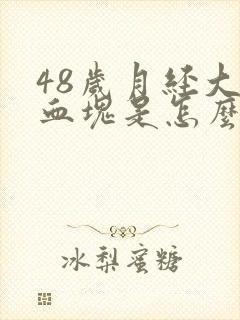 48歲月經大
血塊是怎麼
冰梨蜜糖